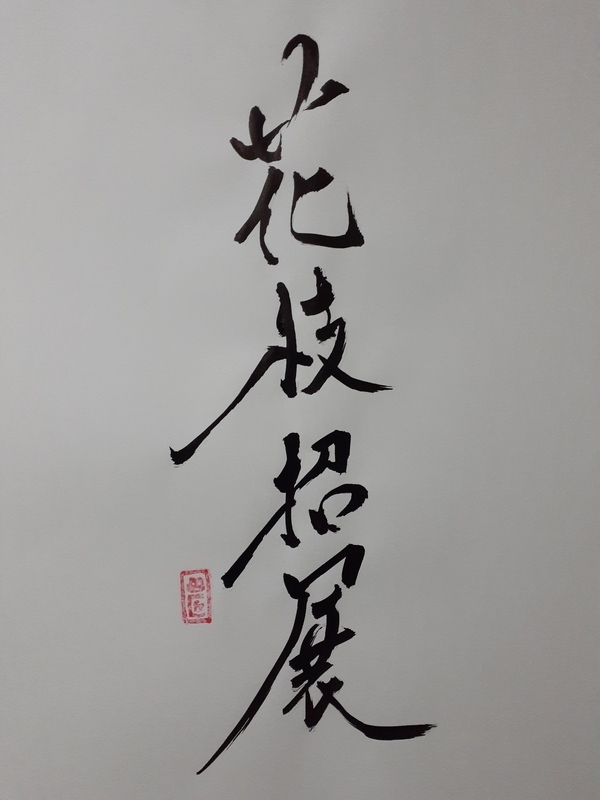 花枝招展